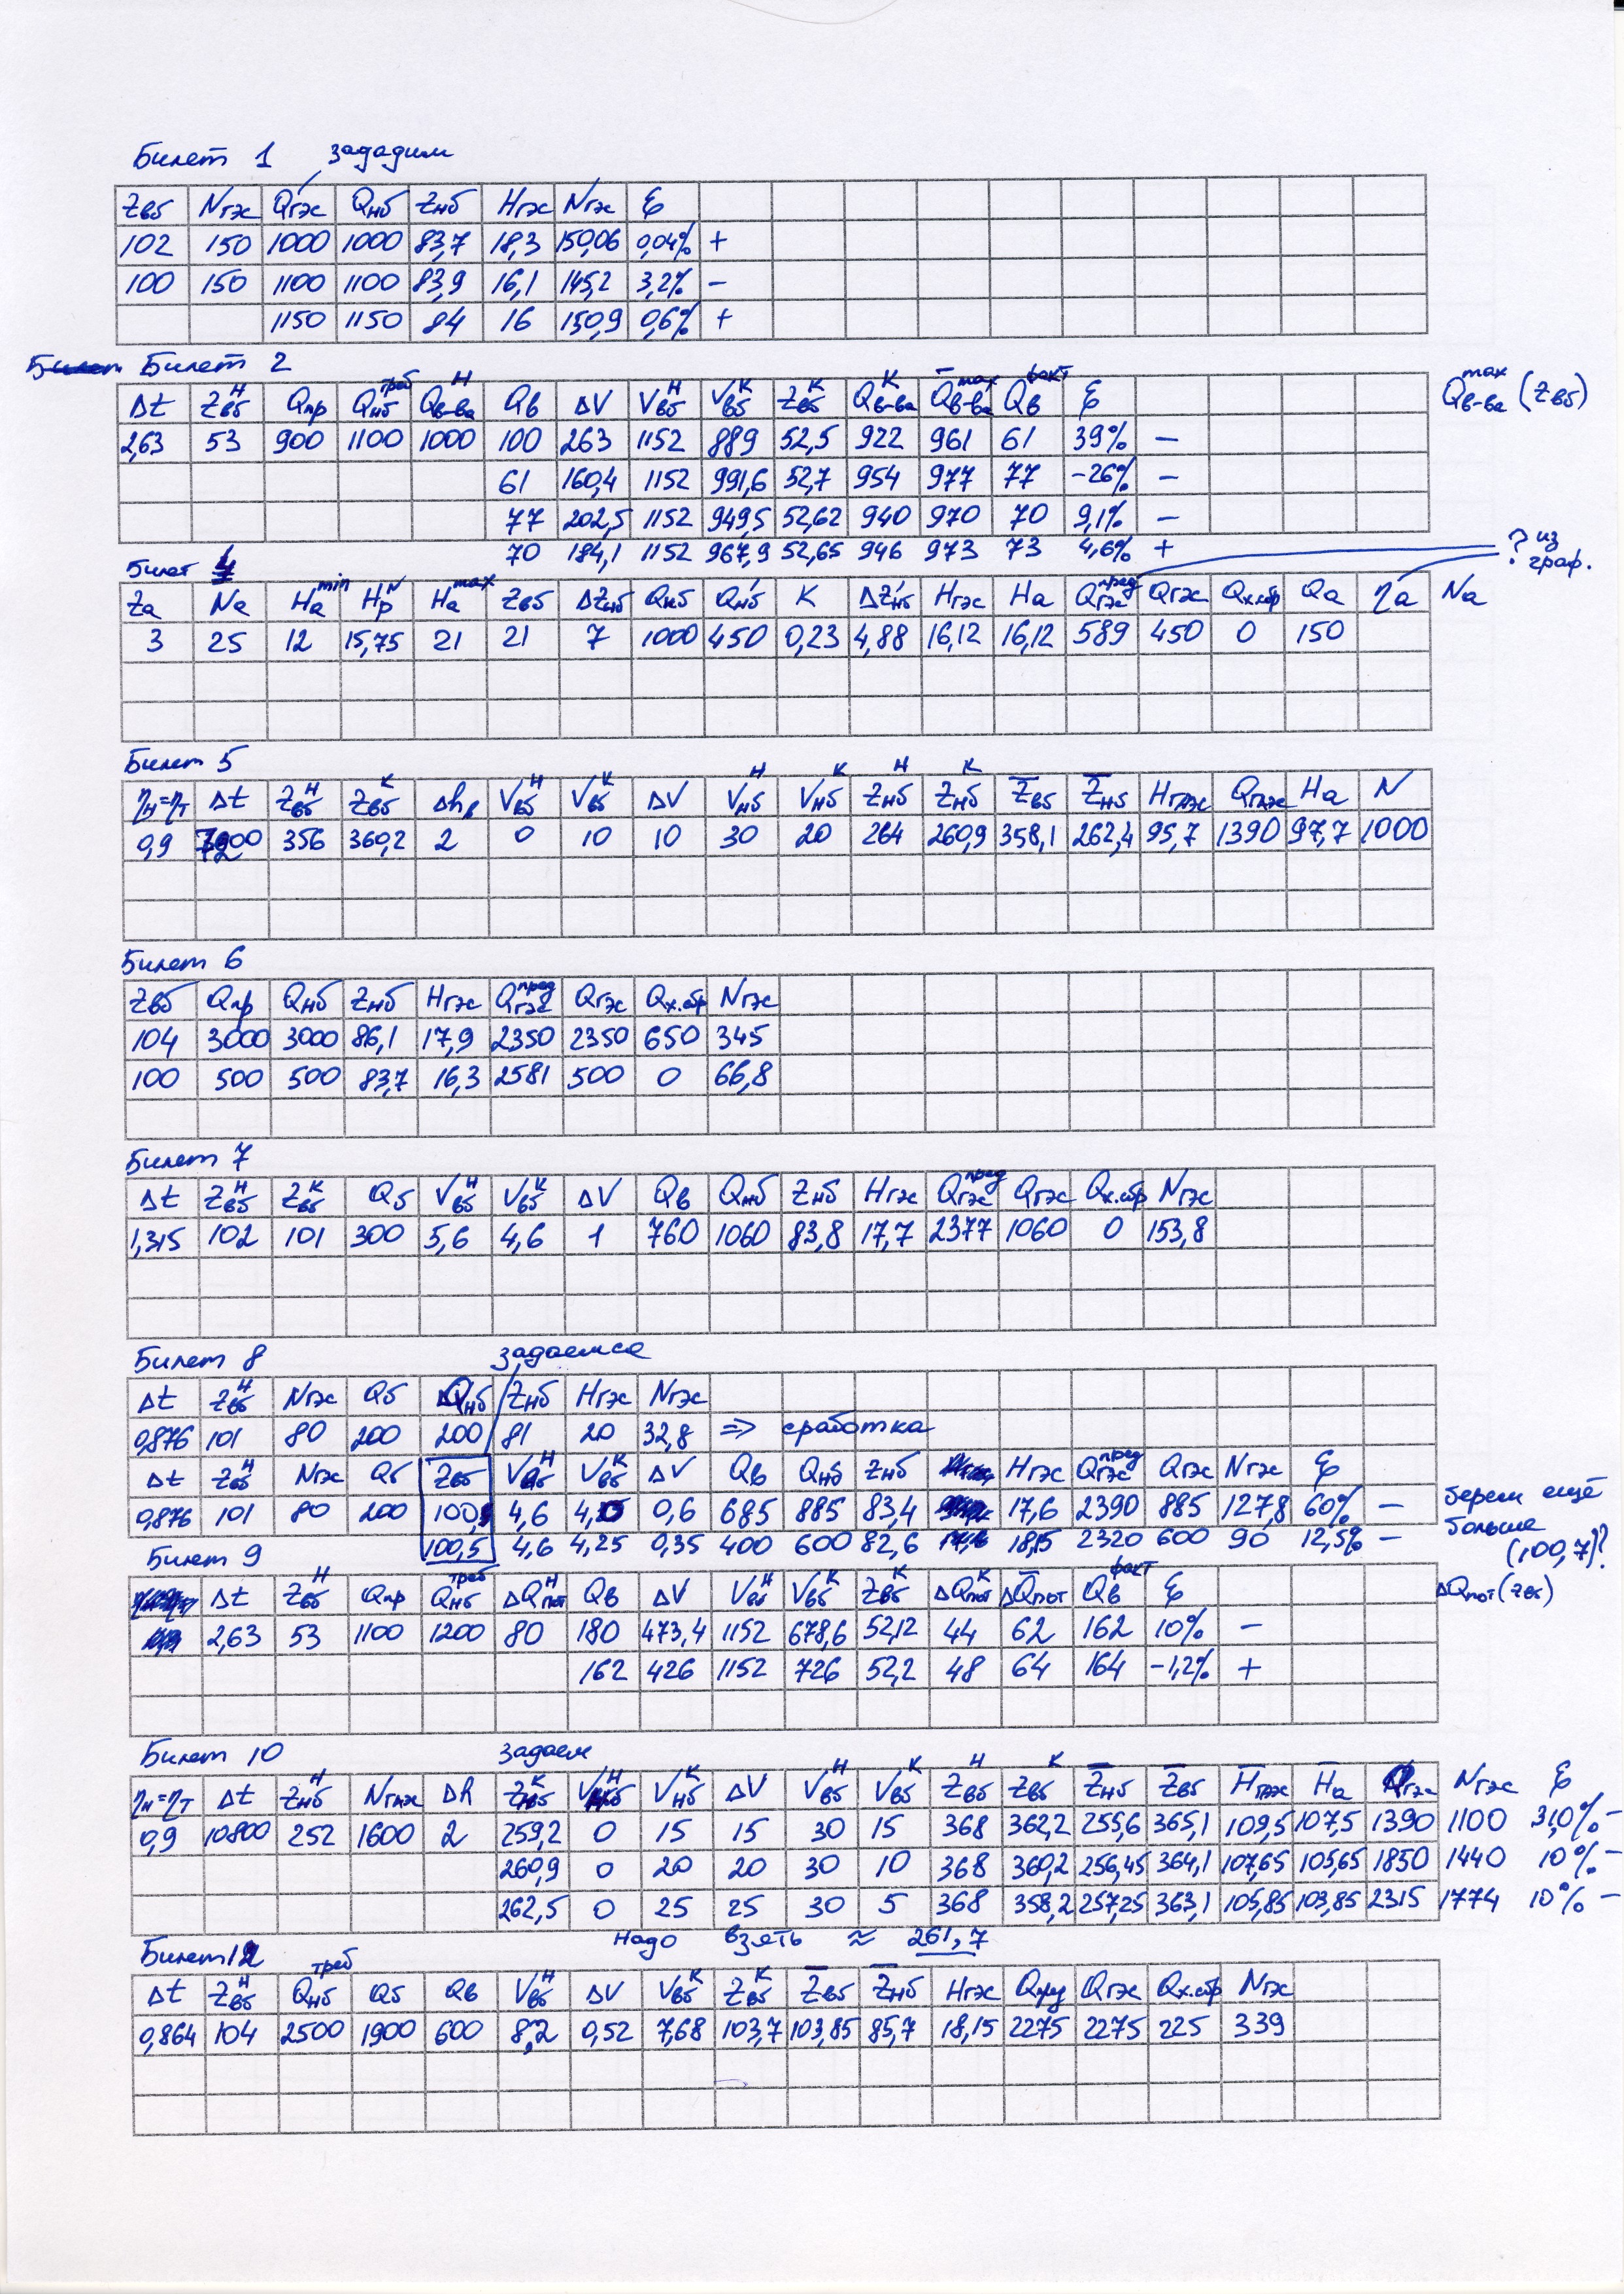 Билет 1 зададим
Zвб Nгэс Qгэс Qнб Zнб Hгэс Nгэс ξ
102 150 1000 1000 83,7 18,3 150,06 0,04% +
100 150 1100 1100 83,9 16,1 145,2 3,2% −
1150 1150 84 16 150,9 0,6% +
Билет 2
Δt Zвбᴴ Qпр Qнбᵗʳᵉᵇ Qв-ваᴴ Qв ΔV Vвбᴴ Vвбᴷ Zвбᴷ Qв-ваᴷ Q̄в-ваᵐᵃˣ Qвфакт ξ Qв-ваᵐᵃˣ (Zвб)
2,63 53 900 1100 1000 100 263 1152 889 52,5 922 961 61 39% −
61 160,4 1152 991,6 52,7 954 977 77 −26% −
77 202,5 1152 949,5 52,62 940 970 70 9,1% −
70 184,1 1152 967,9 52,65 946 973 73 4,6% +
Билет 4 ? из
? граф.
Za Na Haᵐⁱⁿ Hрᴺ Haᵐᵃˣ Zвб ΔZнб Qнб Qнб' K ΔZнб' Hгэс Ha Qгэспред Qгэс Qх.сбр Qa ηa Na
3 25 12 15,75 21 21 7 1000 450 0,23 4,88 16,12 16,12 589 450 0 150
Билет 5
ηн=ηт Δt Zвбᴴ Zвбᴷ Δhв Vвбᴴ Vвбᴷ ΔV Vнбᴴ Vнбᴷ Zнбᴴ Zнбᴷ Z̄вб Z̄нб Hгаэс Qгаэс Ha N
0,9 7200 356 360,2 2 0 10 10 30 20 264 260,9 358,1 262,4 95,7 1390 97,7 1000
Билет 6
Zвб Qпр Qнб Zнб Hгэс Qгэспред Qгэс Qх.сбр Nгэс
104 3000 3000 86,1 17,9 2350 2350 650 345
100 500 500 83,7 16,3 2581 500 0 66,8
Билет 7
Δt Zвбᴴ Zвбᴷ Qб Vвбᴴ Vвбᴷ ΔV Qв Qнб Zнб Hгэс Qгэспред Qгэс Qх.сбр Nгэс
1,315 102 101 300 5,6 4,6 1 760 1060 83,8 17,7 2377 1060 0 153,8
Билет 8 задаемся
Δt Zвбᴴ Nгэс Qб Qнб Zнб Hгэс Nгэс
0,876 101 80 200 200 81 20 32,8 => сработка
Δt Zвбᴴ Nгэс Qб Zвб Vвбᴴ Vвбᴷ ΔV Qв Qнб Zнб Hгэс Qгэспред Qгэс Nгэс ξ
0,876 101 80 200 100, 4,6 4,0 0,6 685 885 83,4 17,6 2390 885 127,8 60% − берем ещё
100,5 4,6 4,25 0,35 400 600 82,6 18,15 2320 600 90 12,5% − больше
(100,7)?
Билет 9
Δt Zвбᴴ Qпр Qнбтреб ΔQпотᴴ Qв ΔV Vвбᴴ Vвбᴷ Zвбᴷ ΔQпотᴷ ΔQ̄пот Qвфакт ξ ΔQпот(Zвб)
2,63 53 1100 1200 80 180 473,4 1152 678,6 52,12 44 62 162 10% −
162 426 1152 726 52,2 48 64 164 −1,2% +
Билет 10 Задаем
ηн=ηт Δt Zнбᴴ Nгаэс Δh Zнбᴷ Vнбᴴ Vнбᴷ ΔV Vвбᴴ Vвбᴷ Zвбᴴ Zвбᴷ Z̄нб Z̄вб H̄гаэс H̄a Qгэс Nгэс ξ
0,9 10800 252 1600 2 259,2 0 15 15 30 15 368 362,2 255,6 365,1 109,5 107,5 1390 1100 31,0% −
260,9 0 20 20 30 10 368 360,2 256,45 364,1 107,65 105,65 1850 1440 10% −
262,5 0 25 25 30 5 368 358,2 257,25 363,1 105,85 103,85 2315 1774 10% −
Надо взять ≈ 261,7
Билет 12
Δt Zвбᴴ Qнбтреб Qб Qв Vвбᴴ ΔV Vвбᴷ Zвбᴷ Z̄вб Z̄нб Hгэс Qпред Qгэс Qх.сбр Nгэс
0,864 104 2500 1900 600 8,2 0,52 7,68 103,7 103,85 85,7 18,15 2275 2275 225 339